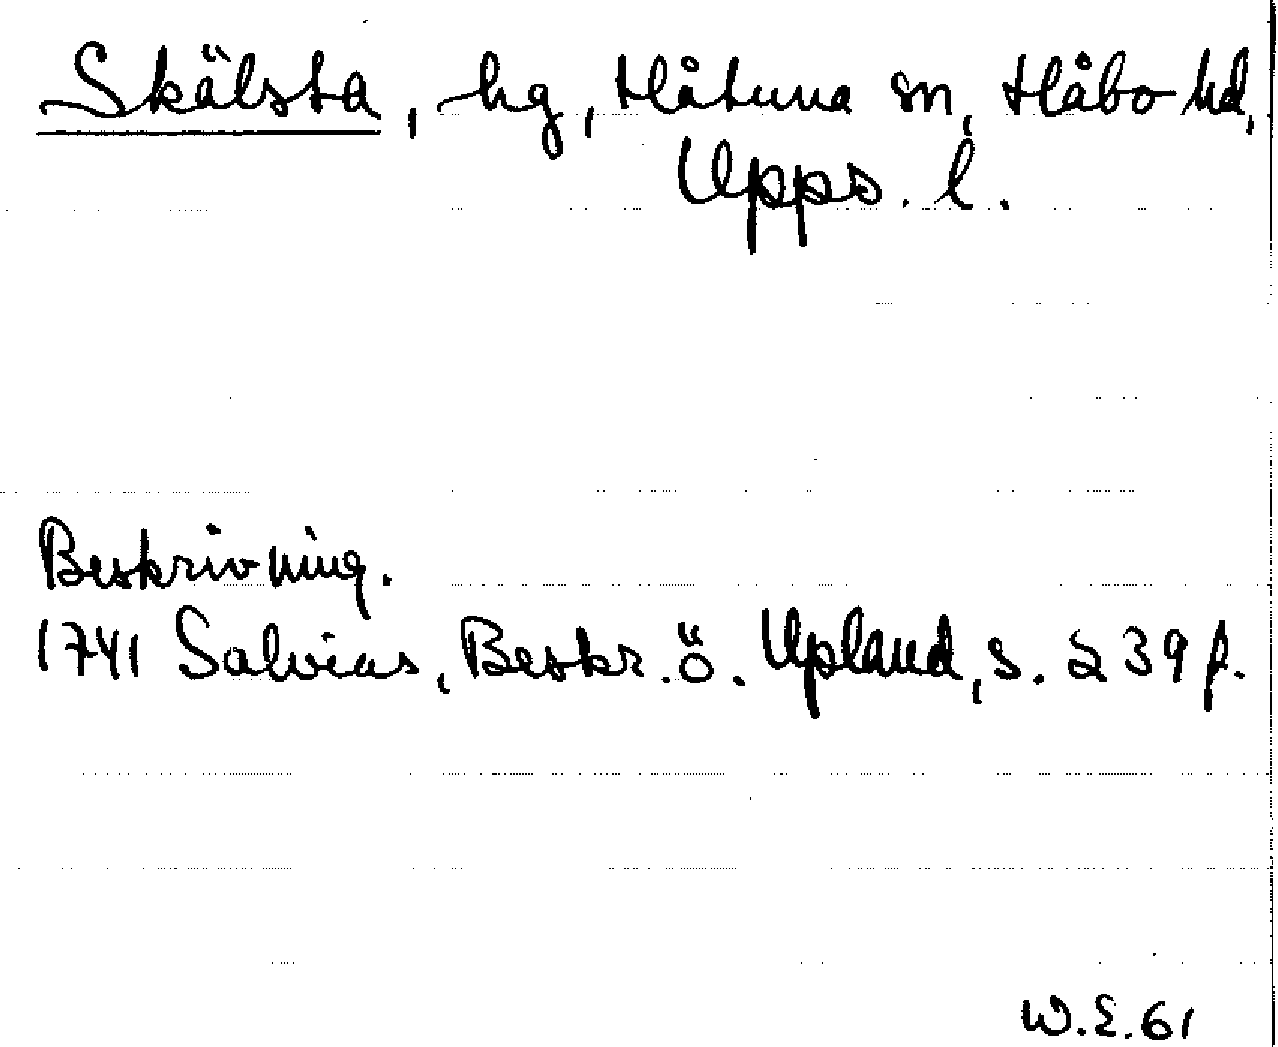 Skälsta, hg, Håtuna sn, Håbo hd,
Upps. l.
Beskrivning.
1741 Salvius, Beskr. ö. Upland, s. 239 f.
W.E. 61